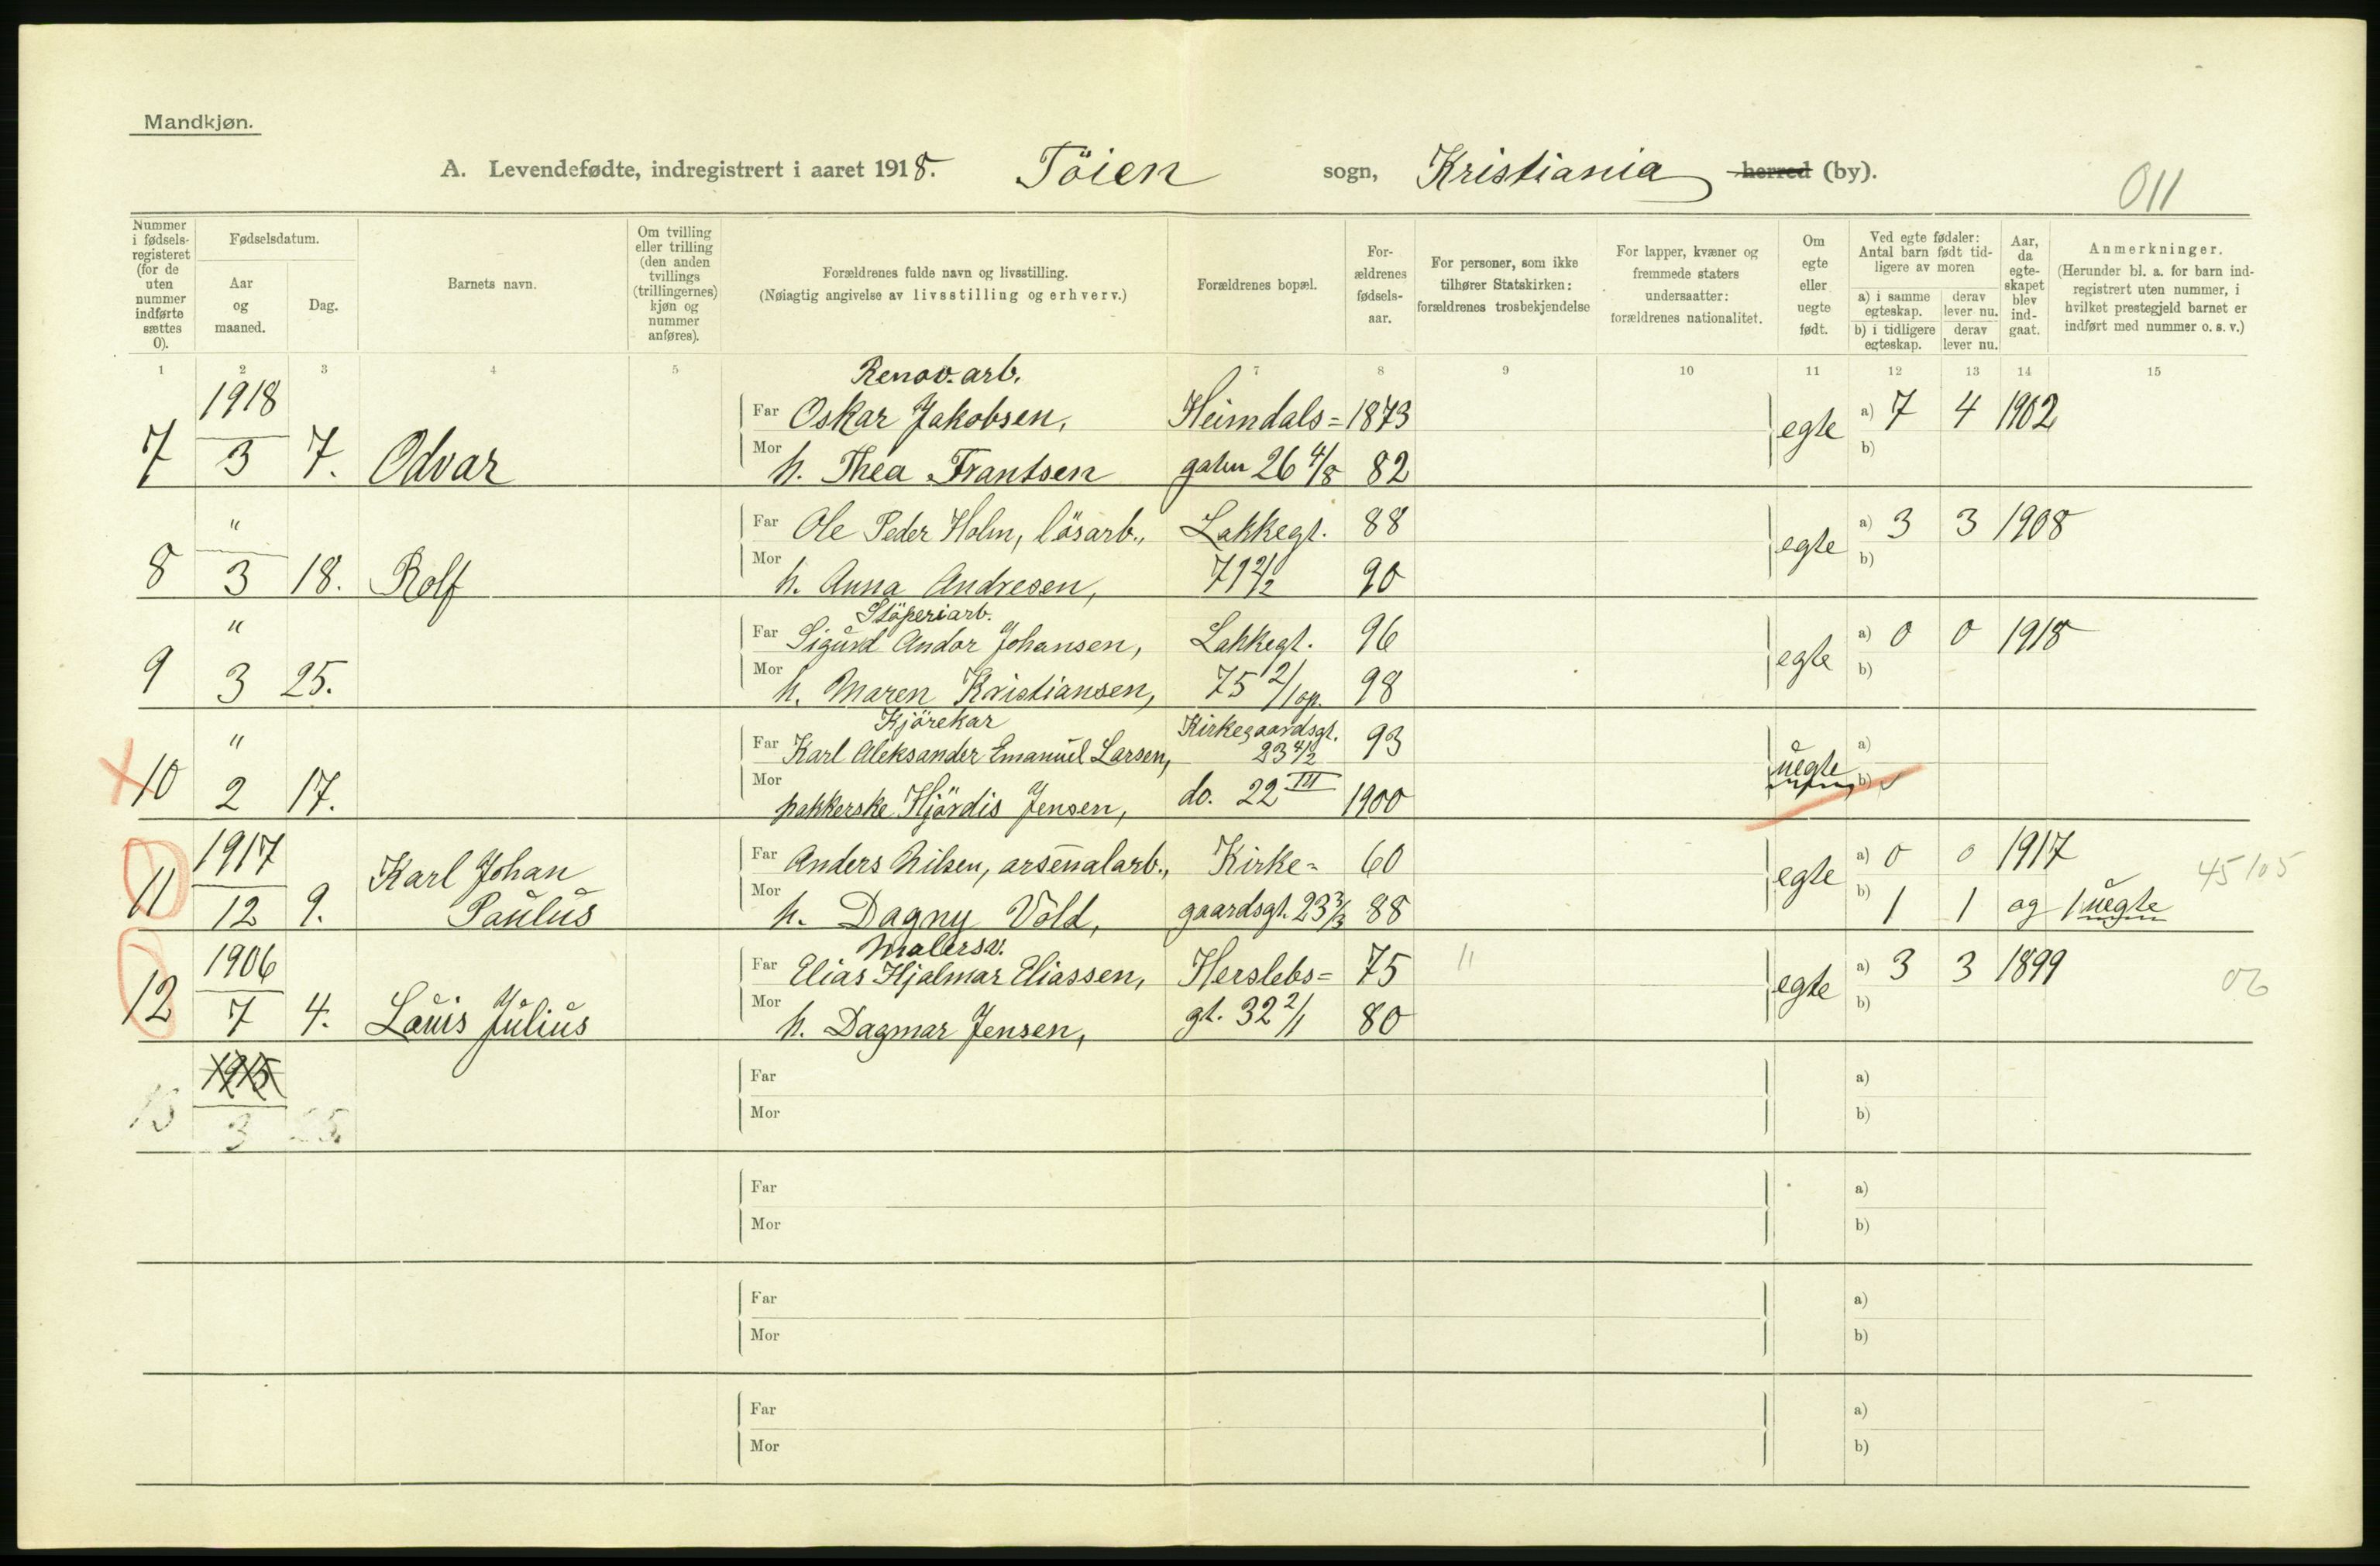 Mandkjøn.
A. Levendefødte, indregistrert i aaret 1918. Töien sogn, Kristiania herred (by).
011
Nummer i fødsels-registeret (for de uten nummer indførte sættes 0).
Fødselsdatum.
Aar og maaned.
Dag.
Barnets navn.
Om tvilling eller trilling (den anden tvillings (trillingernes) kjøn og nummer anføres).
Forældrenes fulde navn og livsstilling.
(Nøiagtig angivelse av livsstilling og erhverv.)
Forældrenes bopæl.
For-ældrenes fødsels-aar.
For personer, som ikke tilhører Statskirken: forældrenes trosbekjendelse
For lapper, kvæner og fremmede staters undersaatter: forældrenes nationalitet.
Om egte eller uegte født.
Ved egte fødsler: Antal barn født tid-ligere av moren
a) i samme egteskap. derav lever nu.
b) i tidligere egteskap. derav lever nu.
Aar, da egte-skapet blev ind-gaat.
Anmerkninger.
(Herunder bl. a. for barn ind-registrert uten nummer, i hvilket prestegjeld barnet er indført med nummer o. s. v.)
1 2 3 4 5 7 8 9 10 11 12 13 14 15
1918 Renov. arb.
Far Oskar Jakobsen, Heimdals= 1873 egte a) 7 4 1902
7 3 7. Odvar Mor h. Thea Frantsen gaten 26 4/8 82 b)
" Far Ole Peder Holm, lösarb., Lakkegt. 88 egte a) 3 3 1908
8 3 18. Rolf Mor h. Anna Andresen, 71 2/2 90 b)
Stöperiarb.
" Far Sigurd Andor Johansen, Lakkegt. 96 egte a) 0 0 1918
9 3 25. Mor h. Maren Kristiansen, 75 2/1 op. 98 b)
Kjörekar
" Far Karl Aleksander Emanuel Larsen, Kirkegaardsgt. 23 4/2 93 uegte a)
10 2 17. Mor pakkerske Hjördis Jensen, do. 22 III 1900 b)
1917 Far Anders Nilsen, arsenalarb., Kirke= 60 egte a) 0 0 1917 45 105
11 12 9. Karl Johan Paulus Mor h. Dagny Vold, gaardsgt. 23 3/3 88 b) 1 1 og 1 uegte
Malersv.
1906 Far Elias Hjalmar Eliassen, Herslebs= 75 11 egte a) 3 3 1899 06
12 7 4. Louis Julius Mor h. Dagmar Jensen, gt. 32 2/1 80 b)
1915 Far a)
13 3 25. Mor b)
Far a)
Mor b)
Far a)
Mor b)
Far a)
Mor b)